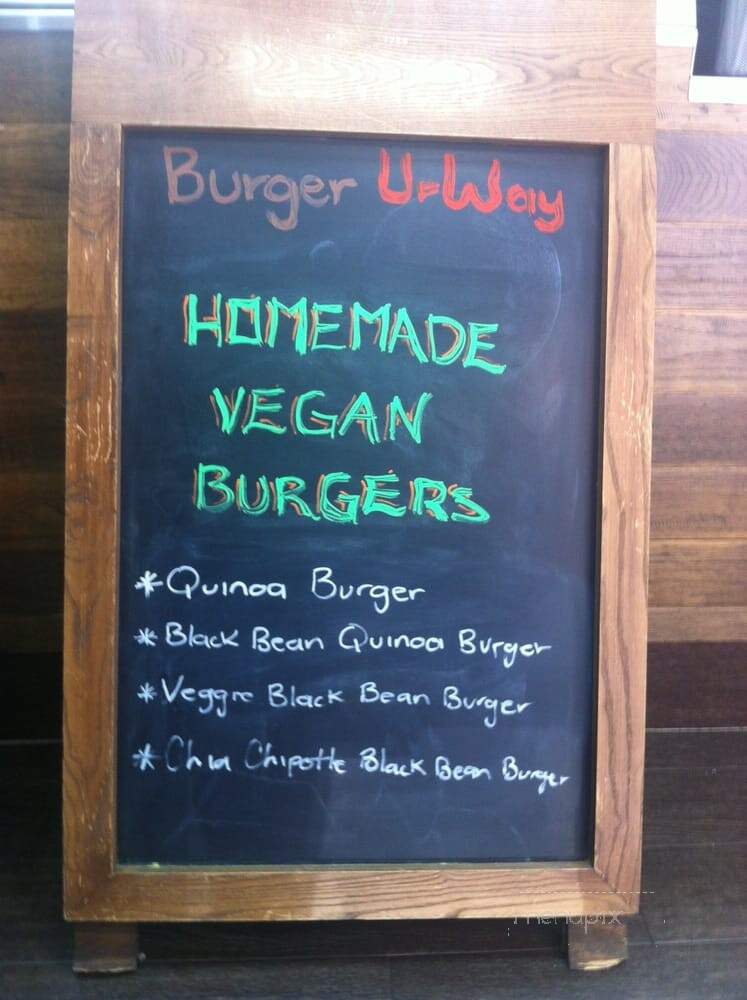 Burger U-Way
HOMEMADE
VEGAN
BURGERS
* Quinoa Burger
* Black Bean Quinoa Burger
* Veggie Black Bean Burger
* Chia Chipotle Black Bean Burger
menupix